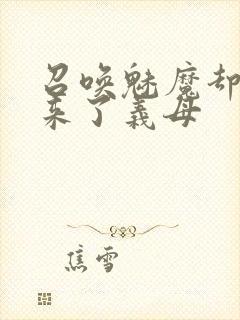 召唤魅魔却
来了義母
焦雪